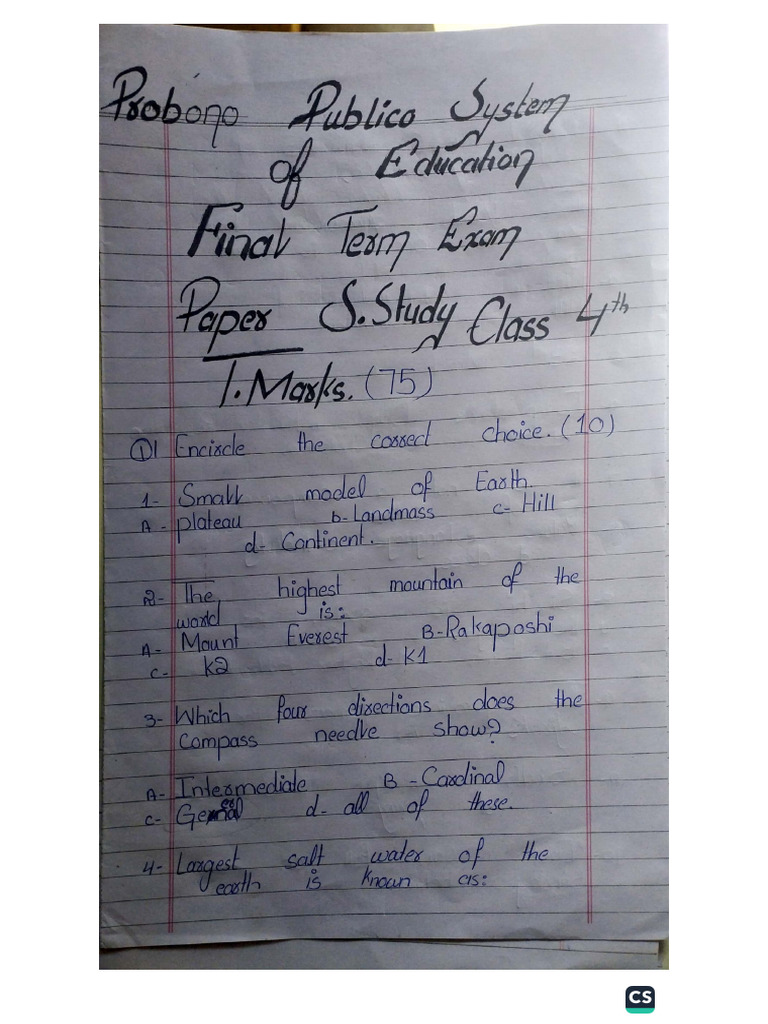 Probono Publico System
of Education
Final Term Exam
Paper S.Study Class 4th
T.Marks. (75)
Q1 Encircle the correct choice. (10)
1- Small model of Earth.
A - plateau b- Landmass c- Hill
d- Continent.
2- The highest mountain of the
world is:
A- Mount Everest B- Rakaposhi
c- K2 d- K1
3- Which four directions does the
Compass needle show?
A- Intermediate B - Cardinal
c- General d- all of these.
4- Largest salt water of the
earth is known as:
CS